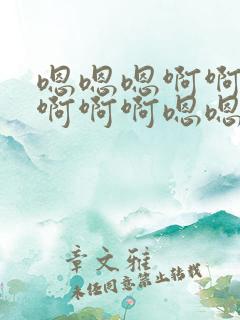 嗯嗯嗯啊啊
啊啊啊嗯嗯
章文雅
未经同意禁止转载